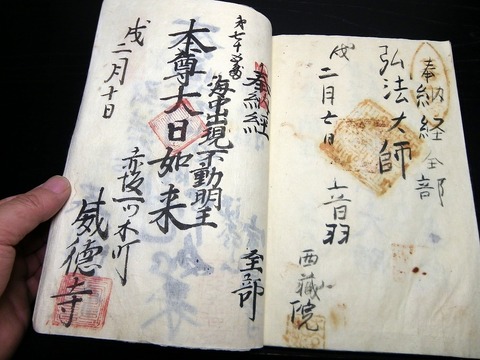 奉納経全部
弘法大師
戌
二月七日
上音羽
西藏院
奉納経
全部
海中出現不動明王
本尊大日如来
赤坂一ツ木町
威徳寺
戌二月十日